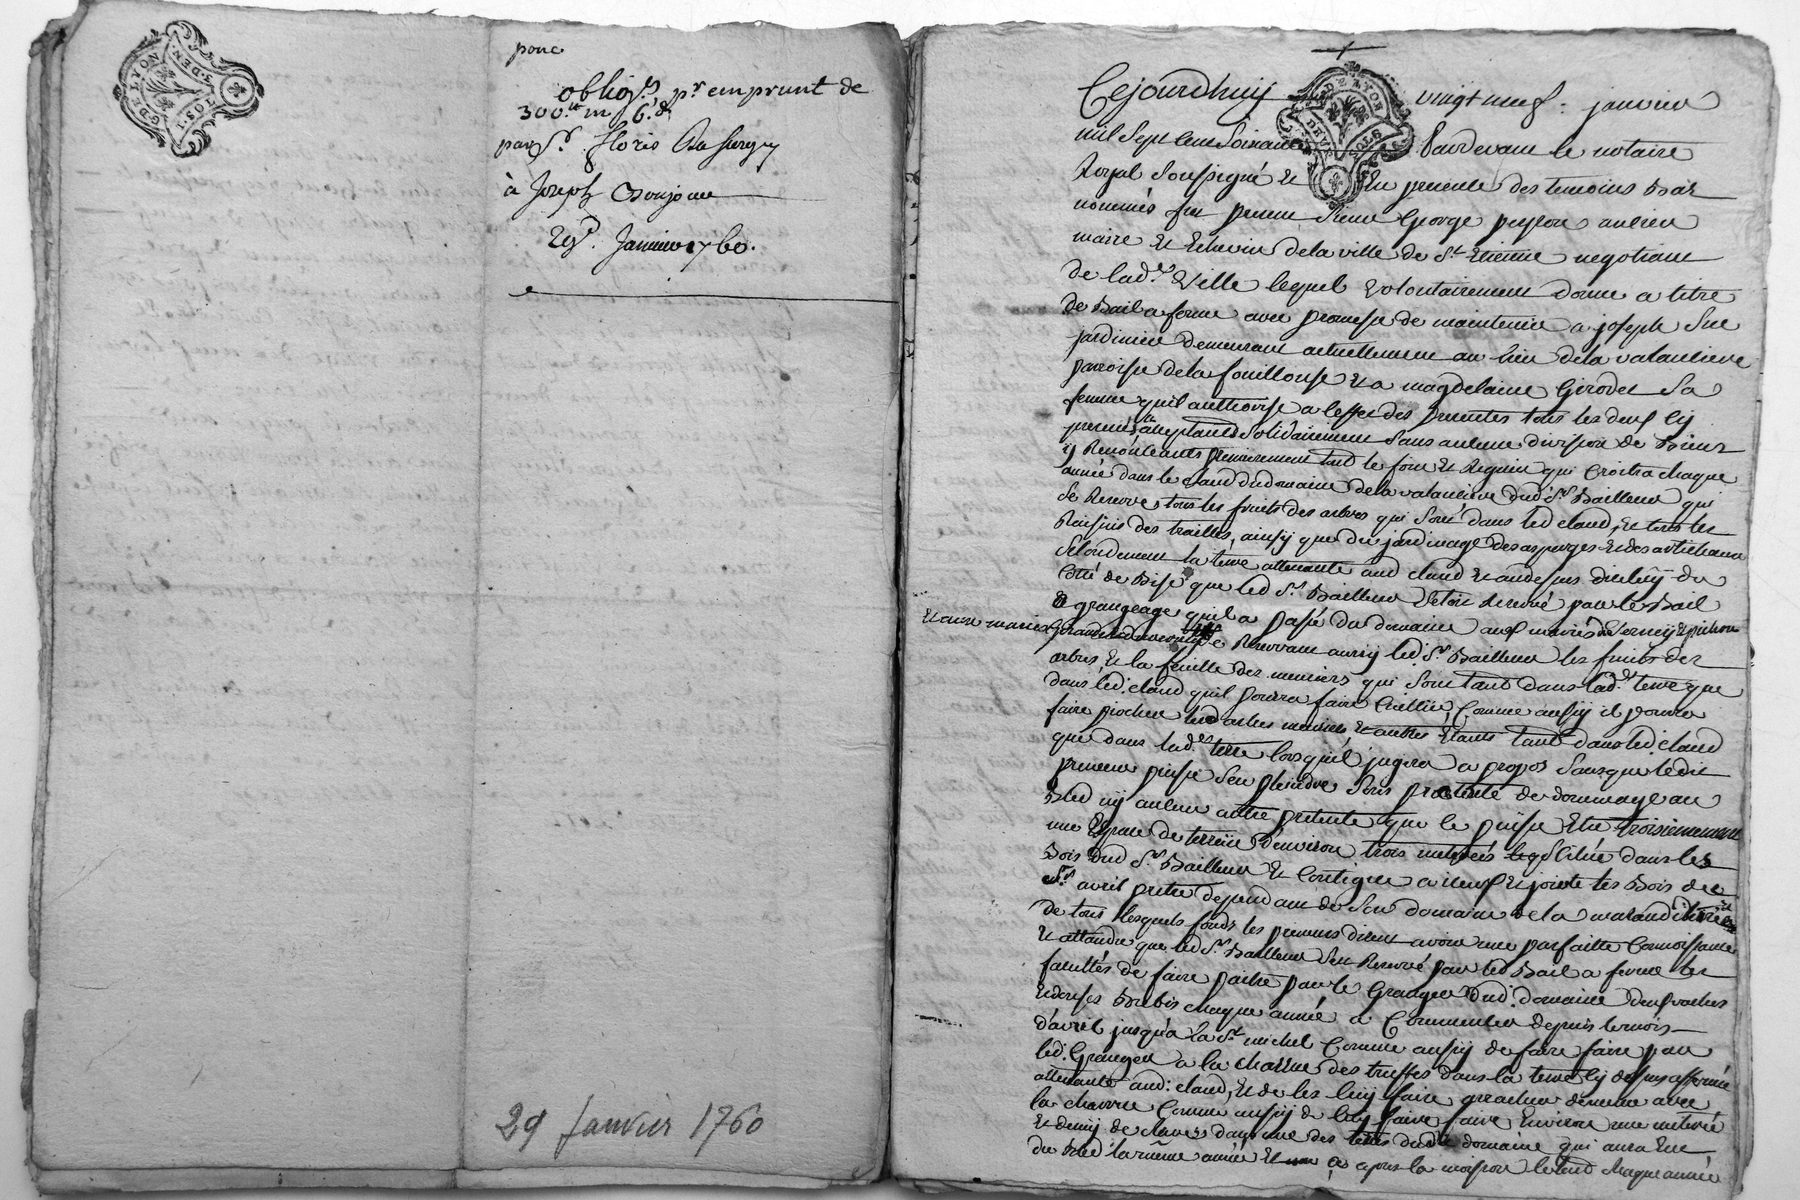 GD. LYON
TOST
3. DEN.
pour
oblig.on pr emprunt de
300.tt
par Sr. Floris
à Joseph Boujone
29e. Janvier 1760.
29 Janvier 1760
Cejourdhuy vingt neuf. janvier
mil sept cent soixante Pardevant le notaire
Royal soussigné et En presence des temoins bas
nommés fut present Sieur George peyron ancien
maire et Echevin de la ville de St. Etienne negotiant
de lad.e Ville lequel volontairement donne a titre
de Bail a ferme avec promesse de maintenir a joseph
jardinier demeurant actuellement au lieu de la valanciere
parroisse de la fouillouse et a magdelaine Girodet sa
femme quil authorise a leffet des presentes tous les deux cy
presents & acceptants solidairement sans aucune division de biens
premierement tout le foin et Reguin qui croitra chaque
année dans le claud du domaine de la valanciere dud. Sr. Bailleur qui
se Reserve tous les fruits des arbres qui sont dans led claud, et tous les
Raisins des trailles, ainsy que du jardinage des asperges et des artichaux
secondement la terre attenante aud claud et au dessus dicelluy du
Coté de Bise que led Sr. Bailleur setoit reservé par le Bail
a grangeage quil a passé du domaine aux mariés
et aux mariés
se Reservant aussy led Sr. Bailleur les fruits des
arbres, et la feuille des meuriers qui sont tant dans lad. terre que
dans led. claud quil pourra faire Cuillir, Comme aussy il pourra
faire piocher lesd arbres meuriers et autres Etants tant dans led. claud
que dans lad.e terre lorsquil jugera a propos sans que ledit
preneur puisse sen pleindre sous pretexte de dommage au
bled ny aucun autre pretexte que le puisse Etre troisiemement
une Espace de terrein denviron trois meterés située dans les
Bois dud Sr. Bailleur et Contigue joints les Bois de
Sr. avril pretre dependant de son domaine de la
de tous lesquels fonds les preneurs disent avoir une parfaitte Connoissance
et attandu que led Sr. Bailleur sest Reservé par led Bail a ferme les
facultés de faire paitre par le Granger dud. domaine deux vaches
brebis chaque année a Commencer depuis le mois
d'avril jusqu'a la St. michel Comme aussy de faire faire par
led. Granger a la charrue des truffes dans la terre cy dessus affermée
attenante aud. claud, et de les luy faire arracher de meme avec
la charrue Comme aussy de luy faire faire Environ une meteré
et demy de raves dans une des terres dud. domaine qui aura Eue
du bled la meme année et apres la moisson le tout chaque année